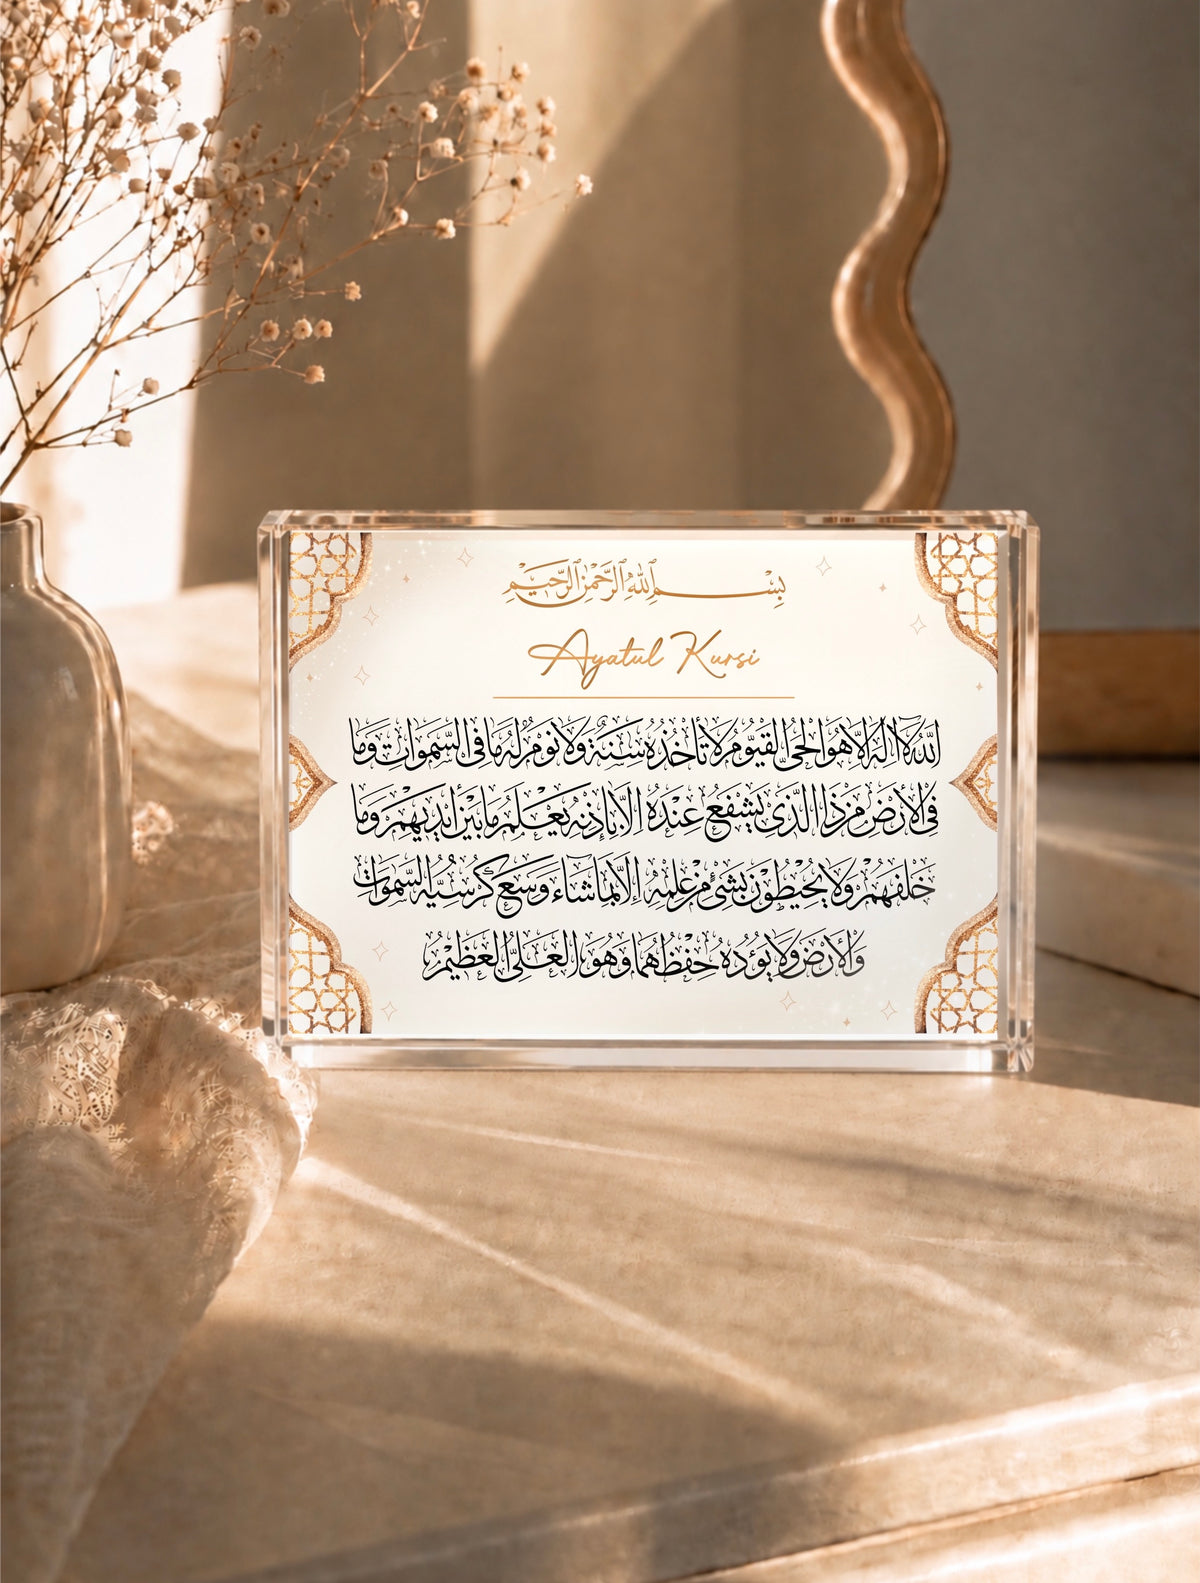 بِسْمِ اللهِ الرَّحْمٰنِ الرَّحِيْمِ
Ayatul Kursi
اَللهُ لَا اِلٰهَ اِلَّا هُوَ الْحَيُّ الْقَيُّوْمُ لَا تَأْخُذُهُ سِنَةٌ وَلَا نَوْمٌ لَهُ مَا فِي السَّمٰوَاتِ وَمَا
فِي الْاَرْضِ مَنْ ذَا الَّذِيْ يَشْفَعُ عِنْدَهُ اِلَّا بِاِذْنِهِ يَعْلَمُ مَا بَيْنَ اَيْدِيْهِمْ وَمَا
خَلْفَهُمْ وَلَا يُحِيْطُوْنَ بِشَيْءٍ مِنْ عِلْمِهِ اِلَّا بِمَا شَاءَ وَسِعَ كُرْسِيُّهُ السَّمٰوَاتِ
وَالْاَرْضَ وَلَا يَؤُدُهُ حِفْظُهُمَا وَهُوَ الْعَلِيُّ الْعَظِيْمُ